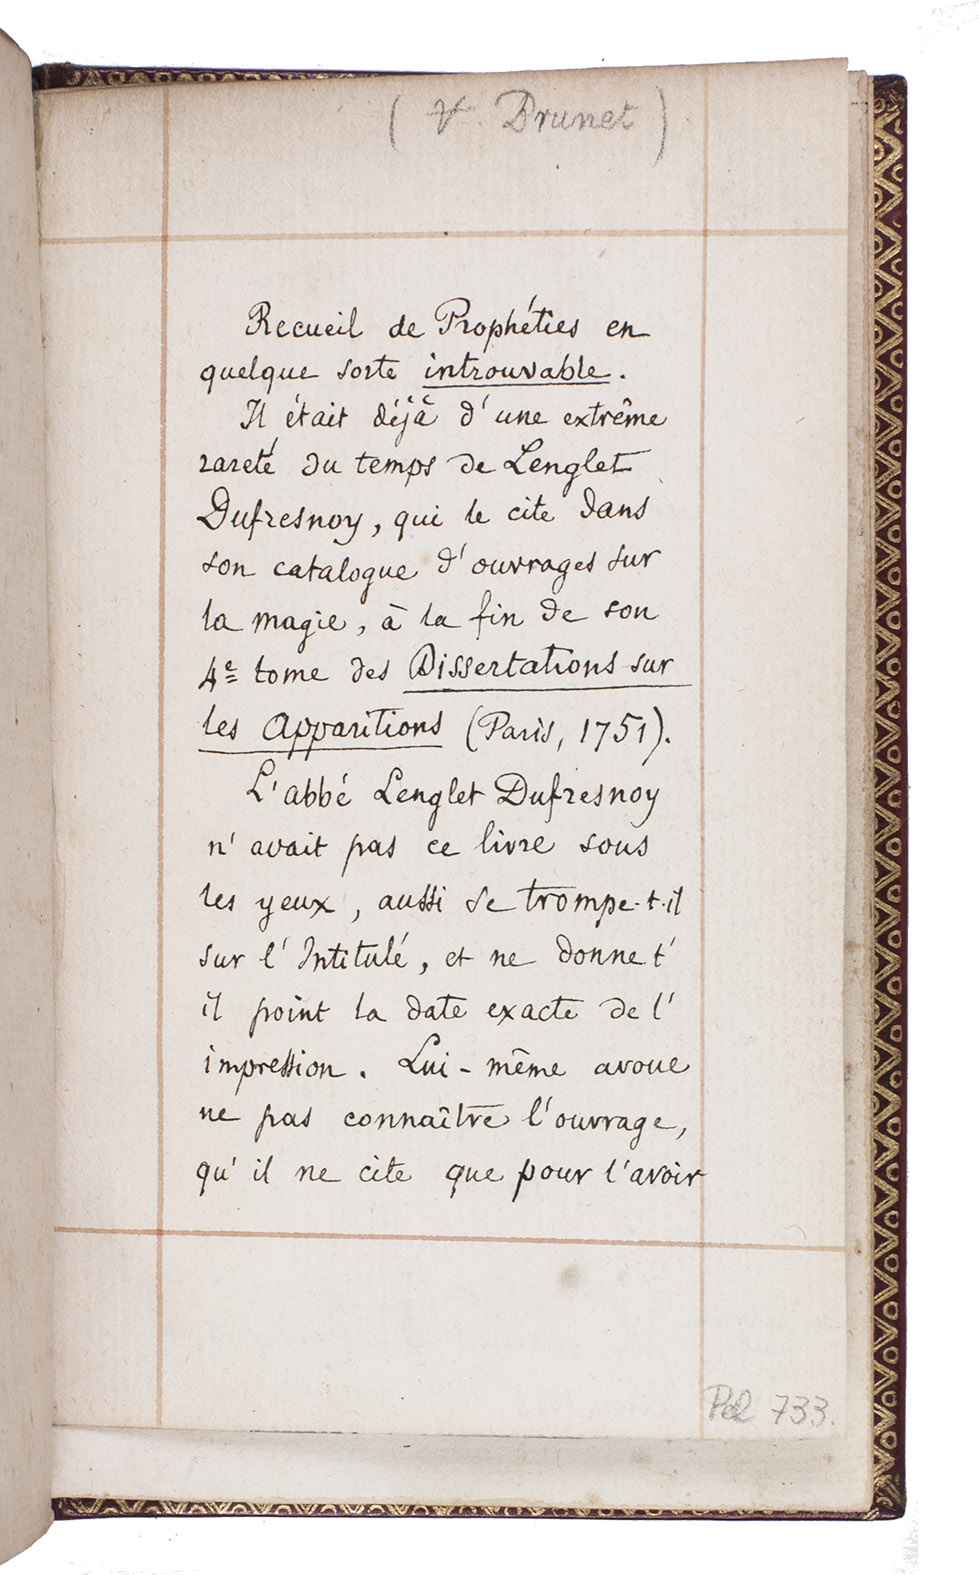 (V. Brunet)
Recueil de Prophéties en
quelque sorte introuvable.
Il était déjà d'une extrême
rareté du temps de Lenglet
Dufresnoy, qui le cite dans
son catalogue d'ouvrages sur
la magie, à la fin de son
4e tome des Dissertations sur
les Apparitions (Paris, 1751).
L'abbé Lenglet Dufresnoy
n'avait pas ce livre sous
les yeux, aussi se trompe-t-il
sur l'Intitulé, et ne donne t'
il point la date exacte de l'
impression. Lui-même avoue
ne pas connaître l'ouvrage,
qu'il ne cite que pour l'avoir
733.